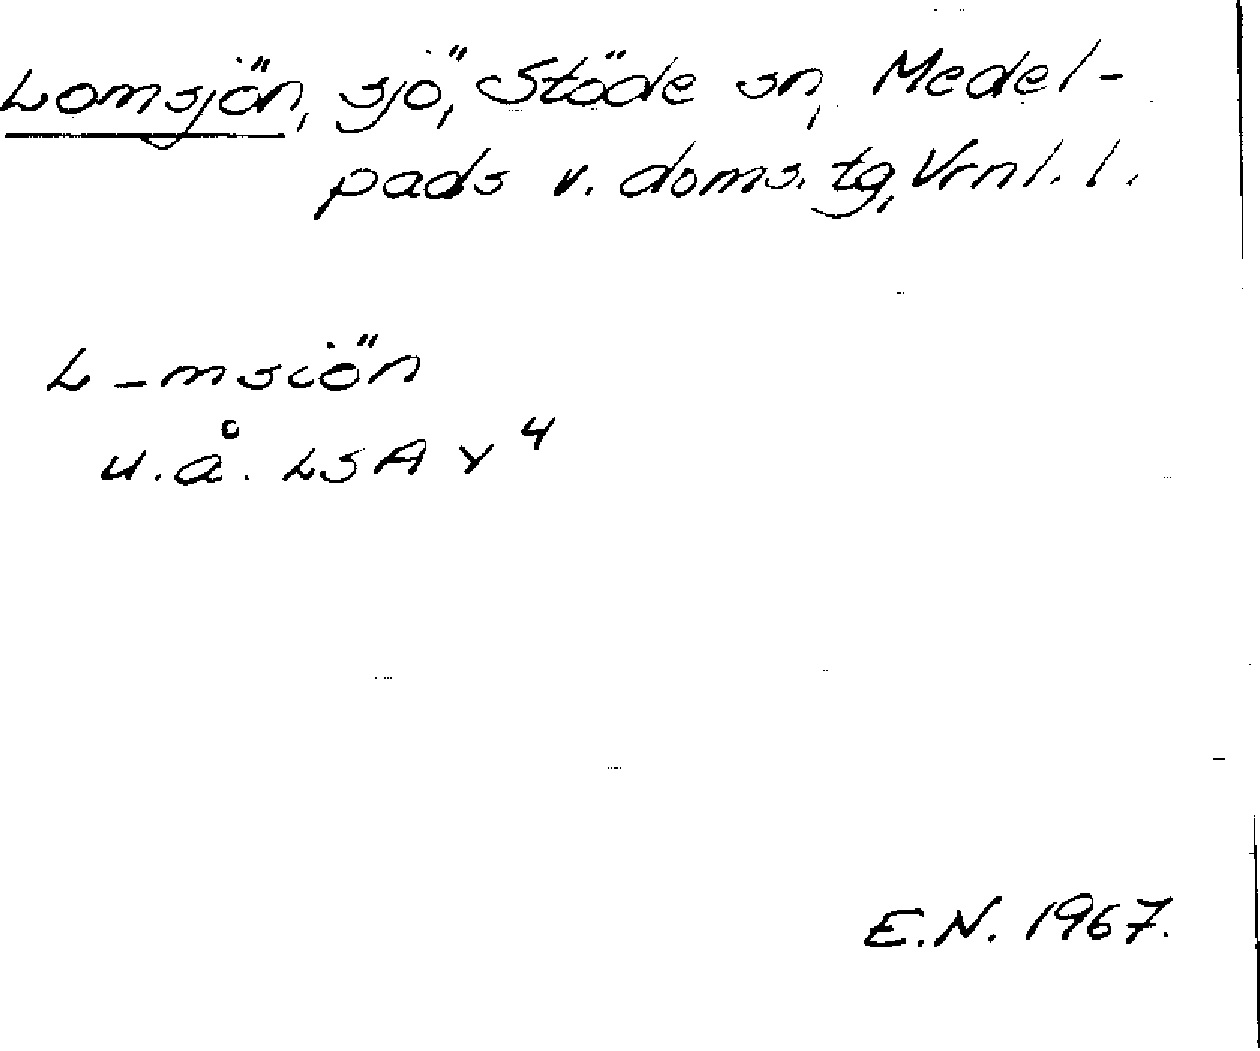 Lomsjön, sjö, Stöde sn, Medel-
pads v. doms. tg, Vrnl. l.
L-msiön
u.å. LSA Y 4
E.N. 1967.